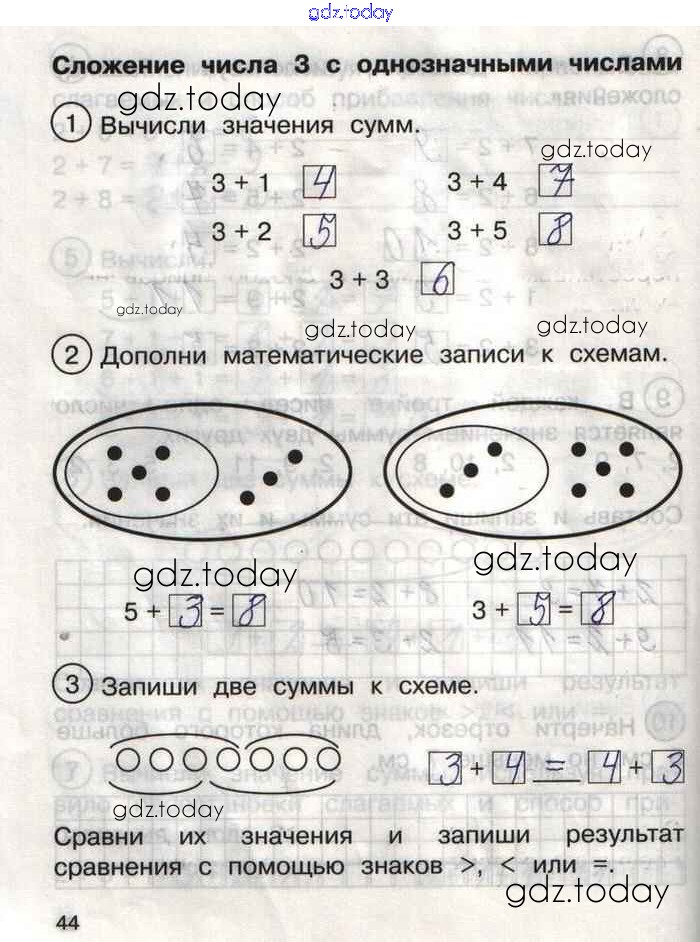 gdz.today
Сложение числа 3 с однозначными числами
gdz.today
1 Вычисли значения сумм.
gdz.today
3 + 1 4 3 + 4 7
3 + 2 5 3 + 5 8
3 + 3 6
gdz.today
gdz.today
gdz.today
2 Дополни математические записи к схемам.
gdz.today
gdz.today
5 + 3 = 8 3 + 5 = 8
3 Запиши две суммы к схеме.
3 + 4 = 4 + 3
gdz.today
Сравни их значения и запиши результат
сравнения с помощью знаков >, < или =.
gdz.today
44